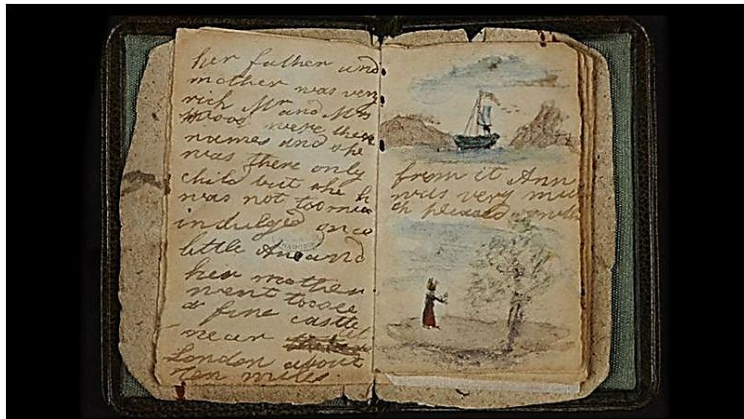 her father and
mother was very
rich Mr and Mrs
Wood were their
names and she
was there only
child but she
was not too much
indulged once
little Ane and
her mother
went to see
a fine castle
near
London about
ten miles
from it Ann
was very mu
ch pleased with